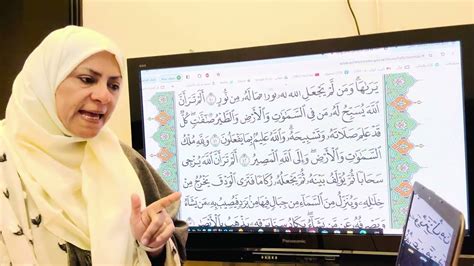 يَرَىٰهَا وَمَن لَّمْ يَجْعَلِ ٱللَّهُ لَهُۥ نُورًا فَمَا لَهُۥ مِن نُّورٍ ۝ أَلَمْ تَرَ أَنَّ
ٱللَّهَ يُسَبِّحُ لَهُۥ مَن فِى ٱلسَّمَٰوَٰتِ وَٱلْأَرْضِ وَٱلطَّيْرُ صَٰٓفَّٰتٍ كُلٌّ
قَدْ عَلِمَ صَلَاتَهُۥ وَتَسْبِيحَهُۥ وَٱللَّهُ عَلِيمٌۢ بِمَا يَفْعَلُونَ ۝ وَلِلَّهِ مُلْكُ
ٱلسَّمَٰوَٰتِ وَٱلْأَرْضِ وَإِلَى ٱللَّهِ ٱلْمَصِيرُ ۝ أَلَمْ تَرَ أَنَّ ٱللَّهَ يُزْجِى
سَحَابًا ثُمَّ يُؤَلِّفُ بَيْنَهُۥ ثُمَّ يَجْعَلُهُۥ رُكَامًا فَتَرَى ٱلْوَدْقَ يَخْرُجُ مِنْ
خِلَٰلِهِۦ وَيُنَزِّلُ مِنَ ٱلسَّمَآءِ مِن جِبَالٍ فِيهَا مِنۢ بَرَدٍ فَيُصِيبُ بِهِۦ مَن يَشَآءُ
وَيَصْرِفُهُۥ عَن مَّن يَشَآءُ يَكَادُ سَنَا بَرْقِهِۦ يَذْهَبُ بِٱلْأَبْصَٰرِ
Panasonic